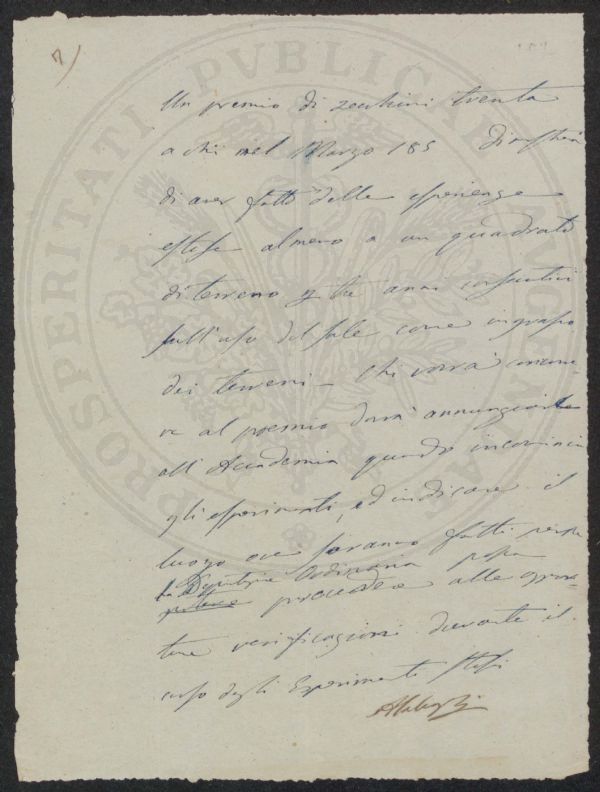 7)
Un premio di zecchini trenta
a chi nel Marzo 185 dimostrerà
di aver fatto delle esperienze
estese almeno a un quadrato
di terreno p tre anni consecutivi
sull'uso del sale come ingrasso
dei terreni – chi vorrà concorre-
re al premio dovrà annunziare
all'Accademia quando incomincia
gli esperimenti, ed indicare il
luogo ove saranno fatti perche
la Deputazione Ordinaria possa
procedere alle oppor-
tune verificazioni durante il
corso degli Esperimenti stessi
PROSPERITATI PVBLICAE